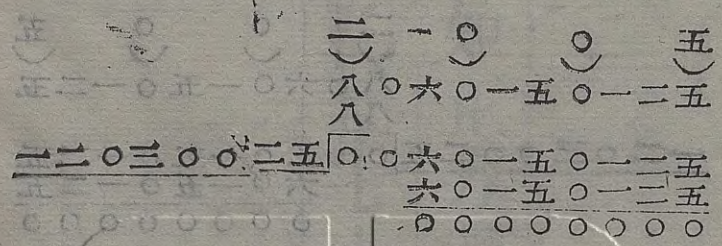 二○○五
八○六○一五○一二五
八
一二○三○○二五○○六○一五○一二五
六○一五○一二五
○○○○○○○○